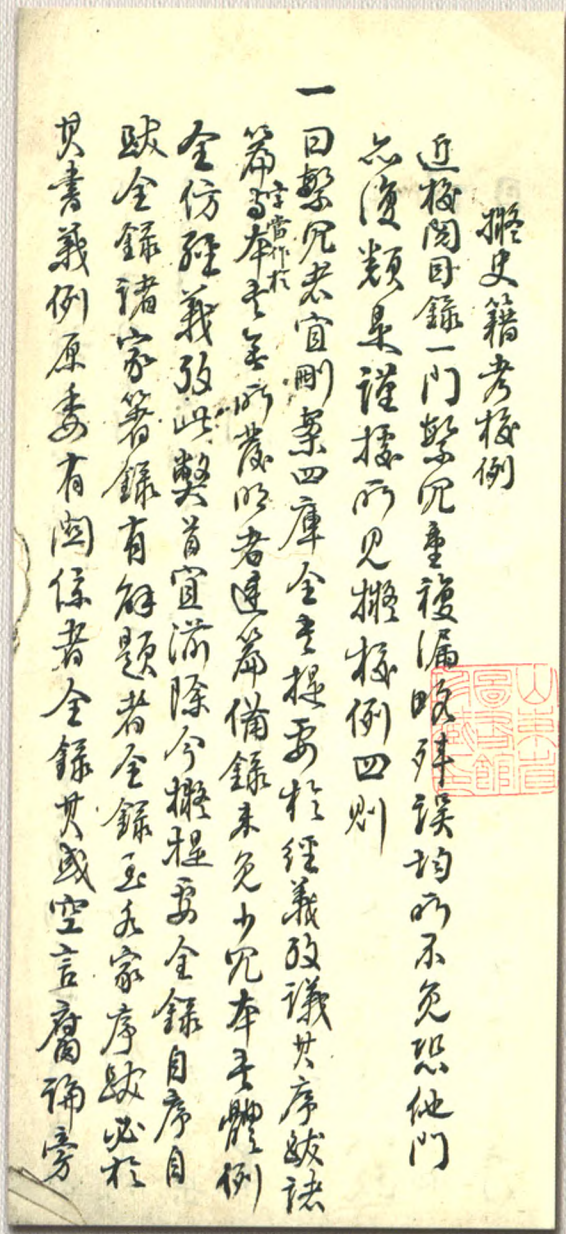 擬史籍考校例
近校閱目錄一門繁冗重複漏略舛誤均所不免恐他門
亦復類是謹據所見擬校例四則
一曰繁冗者宜刪案四庫全書提要於經義攷議其序跋諸
篇與本書無所發明者連篇備錄未免少冗本書體例
字當作於
全仿經義攷此弊首宜滌除今擬提要全錄自序自
跋全錄諸家著錄有解題者全錄至各家序跋必於
其書義例原委有關係者全錄其或空言腐論旁
山東省
圖書館